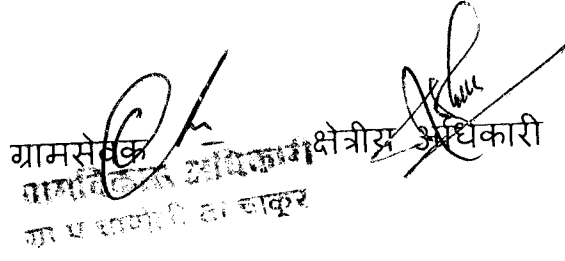 ग्रामसेवक क्षेत्रीय अधिकारी
ग्रामविकास अधिकारी
ग्रा प ता चाकूर